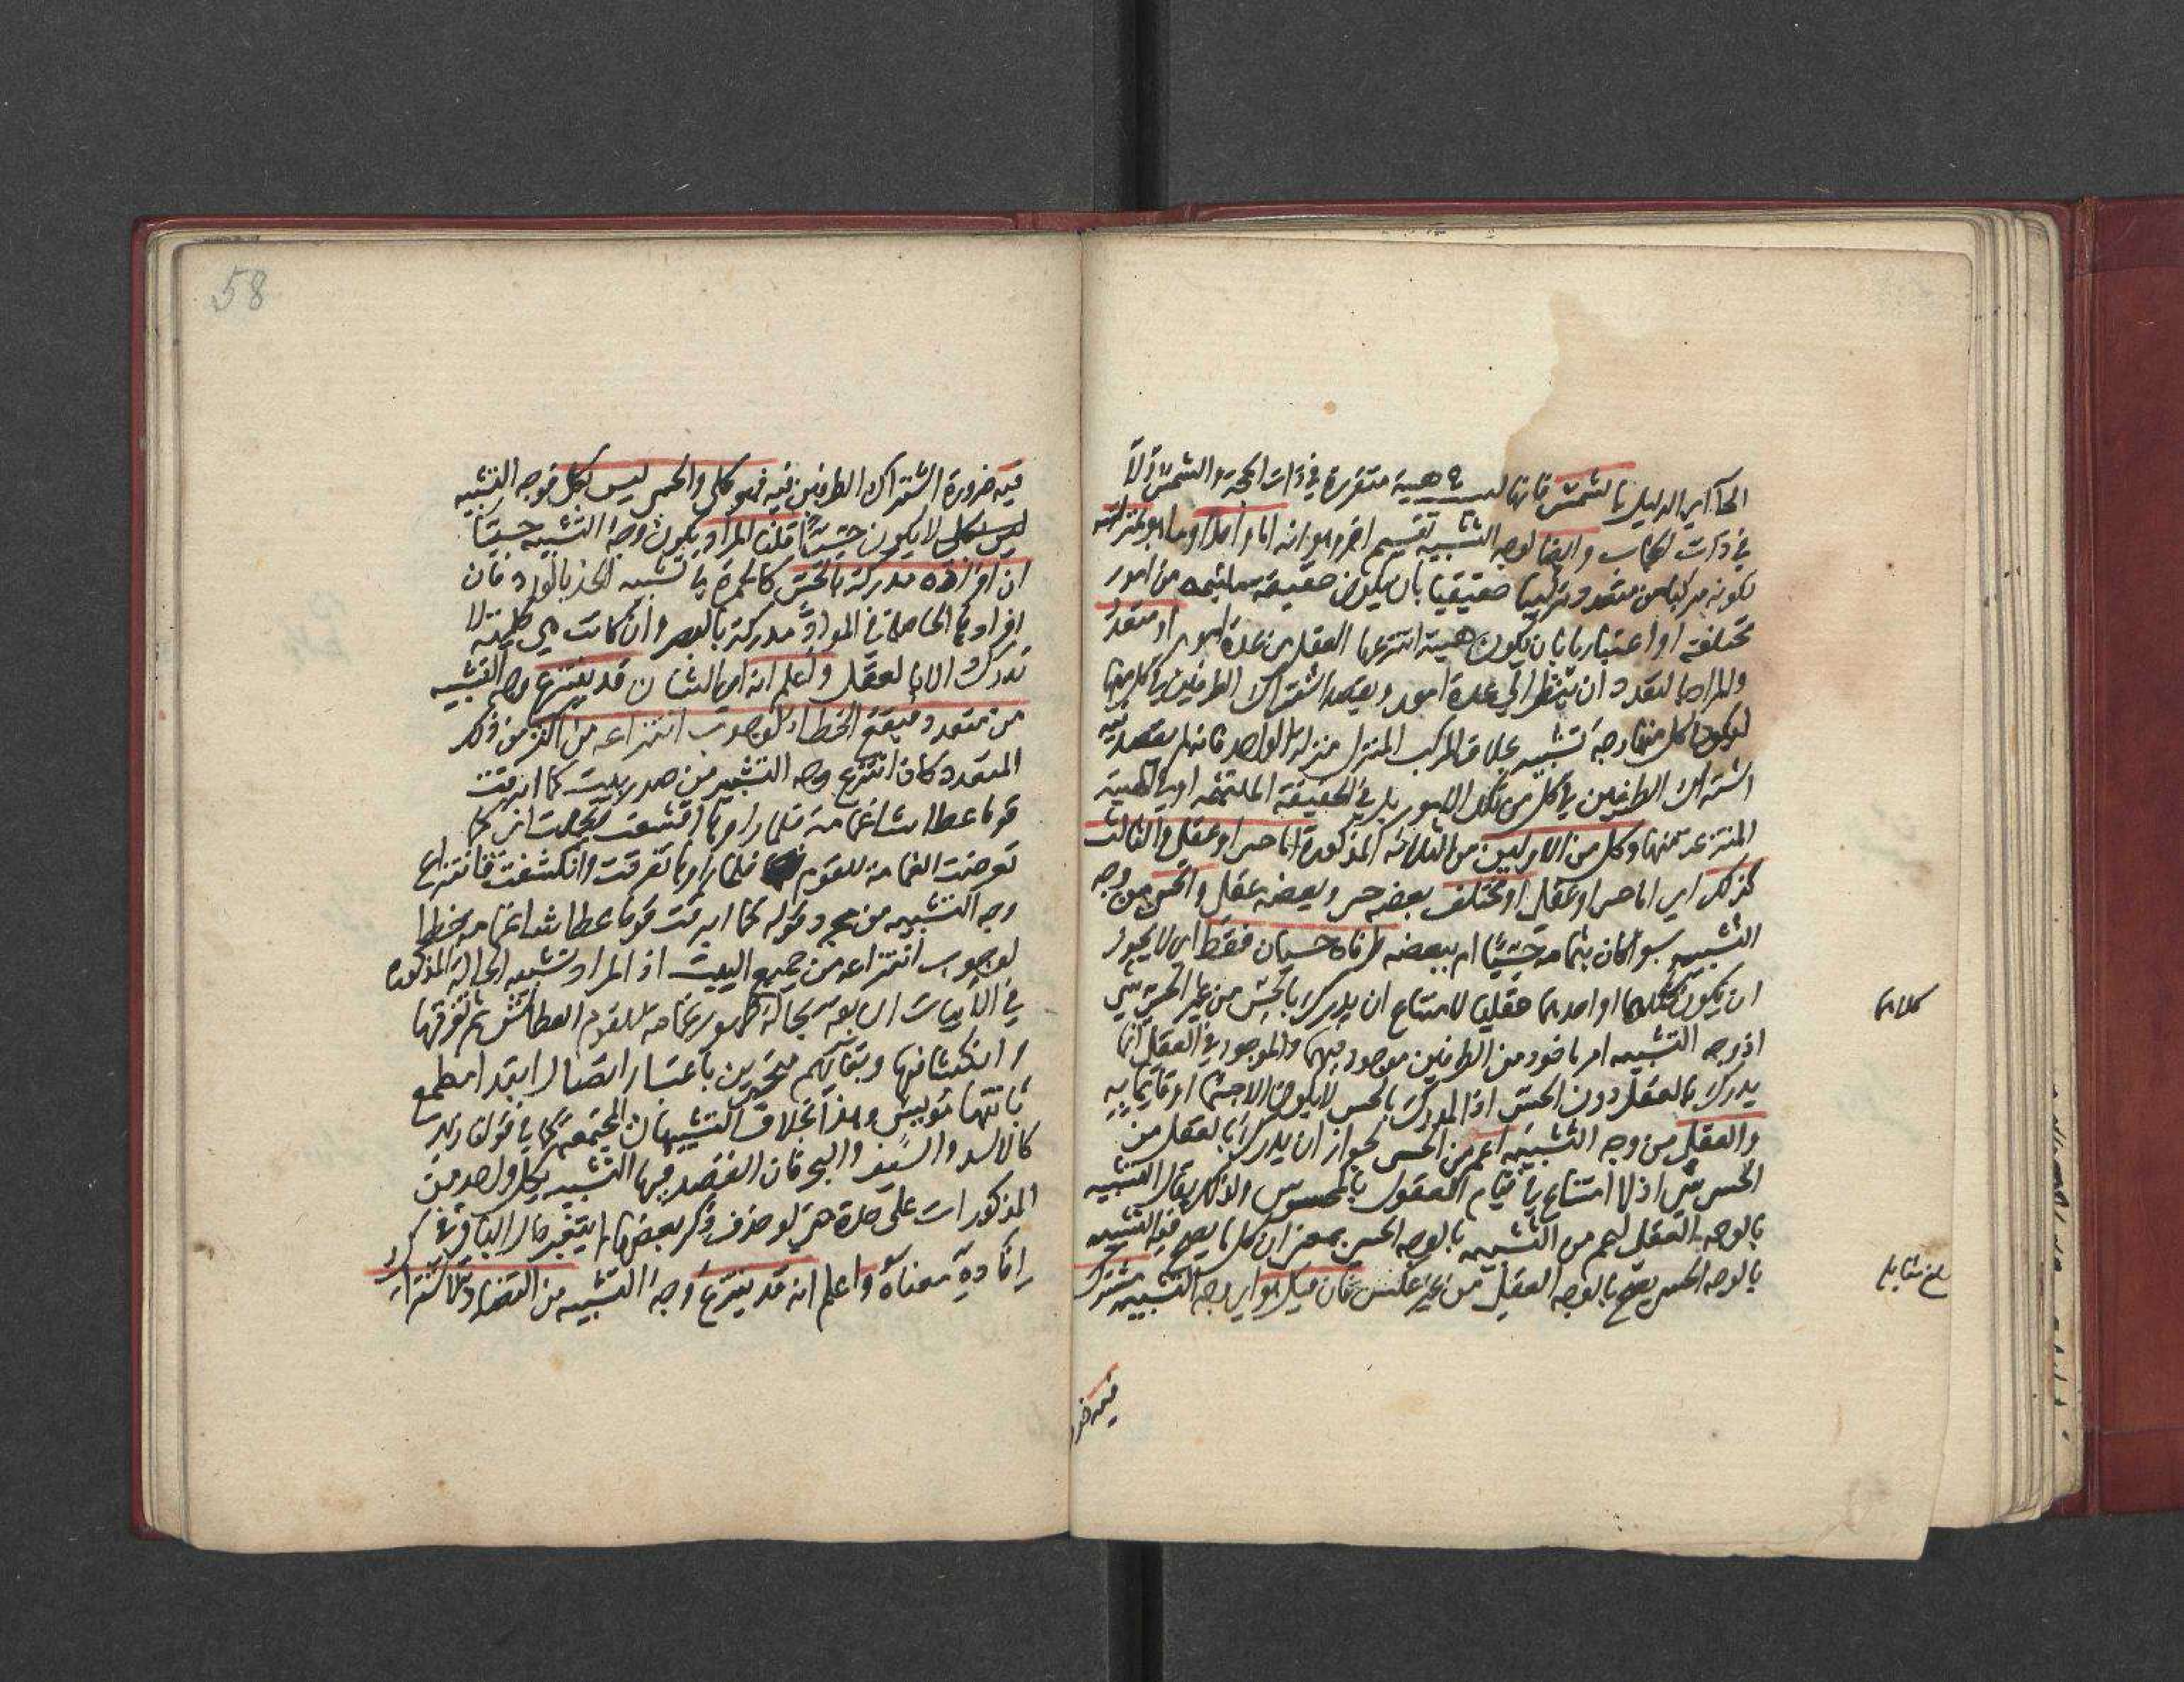 الحجة اى الدليل بالشمس فانها ليست هيئة متقررة فى ذات الحجة والشمس ولا
فى ذات الحجاب وايضا لوجه التشبيه تقسيم اخر وهو انه اما واحد او ما هو بمنزلته
لكونه مركبا من متعدد تركيبا حقيقيا بان يكون حقيقة ملتئمة من امور
مختلفة او اعتباريا بان يكون هيئة انتزعها العقل من عدة امور او متعدد
والمراد بالتعدد ان ينظر الى عدة امور ويقصد اشتراك الطرفين فى كل منها
ليكون كل منها وجه تشبيه بخلاف المركب المنزل منزلة الواحد فانه لم يقصد فيه
اشتراك الطرفين فى كل من تلك الامور بل فى الحقيقة الملتئمة او فى الهيئة
المنتزعة منها وكل من الاولين من الثلاثة المذكورة اما حسى او عقلى والثالث
كذلك اى اما حسى او عقلى او مختلف بعضه حسى وبعضه عقلى والحسى من وجه
التشبيه سواء كان بتمامه حسيا ام ببعضه طرفاه حسيان فقط اى لا يجوز
ان يكون كلاهما او احدهما عقليا لامتناع ان يدرك بالحس من غير الحسى شئ
كلاهما
اذ وجه التشبيه امر ماخود من الطرفين موجود فيهما والموجود فى العقلى انما
يدرك بالعقل دون الحس اذ المدرك بالحس لا يكون الا جسما او قائما به
والعقلى من وجه التشبيه اعم من الحسى لجواز ان يدرك بالعقل من
الحسى شئ اذ لا امتناع فى قيام المعقول بالمحسوس ولذلك يقال التشبيه
بالوجه العقلى اعم من التشبيه بالوجه الحسى بمعنى ان كل ما يصح فيه التشبيه
بالوجه الحسى يصح بالوجه العقلى من غير عكس فان قيل هو اى وجه التشبيه مشترك
بلغ مقابلة
فيه ضرو
58
فيه ضرورة اشتراك الطرفين فيه فهو كلى والحسى ليس بكلى فوجه التشبيه
لا يكون حسيا قلنا المراد بكون وجه التشبيه حسيا
ان افراده مدركة بالحس كالحمرة فى تشبيه الخد بالورد فان
افرادها الحاصلة فى المواد مدركة بالبصر وان كانت هى كلية لا
تدرك الا بالعقل واعلم انه اى الشان قد ينتزع وجه التشبيه
من متعدد فيقع الخطا لوجوب انتزاعه من اكثر من ذلك
المتعدد كما اذا انتزع وجه التشبيه من صدر بيت كما ابرقت
قوما عطاشا غمامة فلما راوها اقشعت وتجلت اى كما
تعرضت الغمامة للقوم فلما راوها تفرقت وانكشفت فانتزاع
وجه التشبيه من مجرد قوله كما ابرقت قوما عطاشا غمامة خطا
لوجوب انتزاعه من جميع البيت اذ المراد تشبيه الحالة المذكورة
فى الابيات السابقة بحالة ظهور غمامة للقوم العطاش ثم تفرقها
وانكشافها وبقائهم متحيرين باعتبار اتصال ابتداء مطمع
بانتهاء مويس وهذا بخلاف التشبيهات المجتمعة كما فى قولنا زيد
كالاسد والسيف والبحر فان القصد فيها التشبيه بكل واحد من
المذكورات على حدة حتى لو حذف ذكر بعضها لم يتغير حال الباقى فى
افادة معناه واعلم انه قد ينتزع وجه التشبيه من التضاد لاشتراك